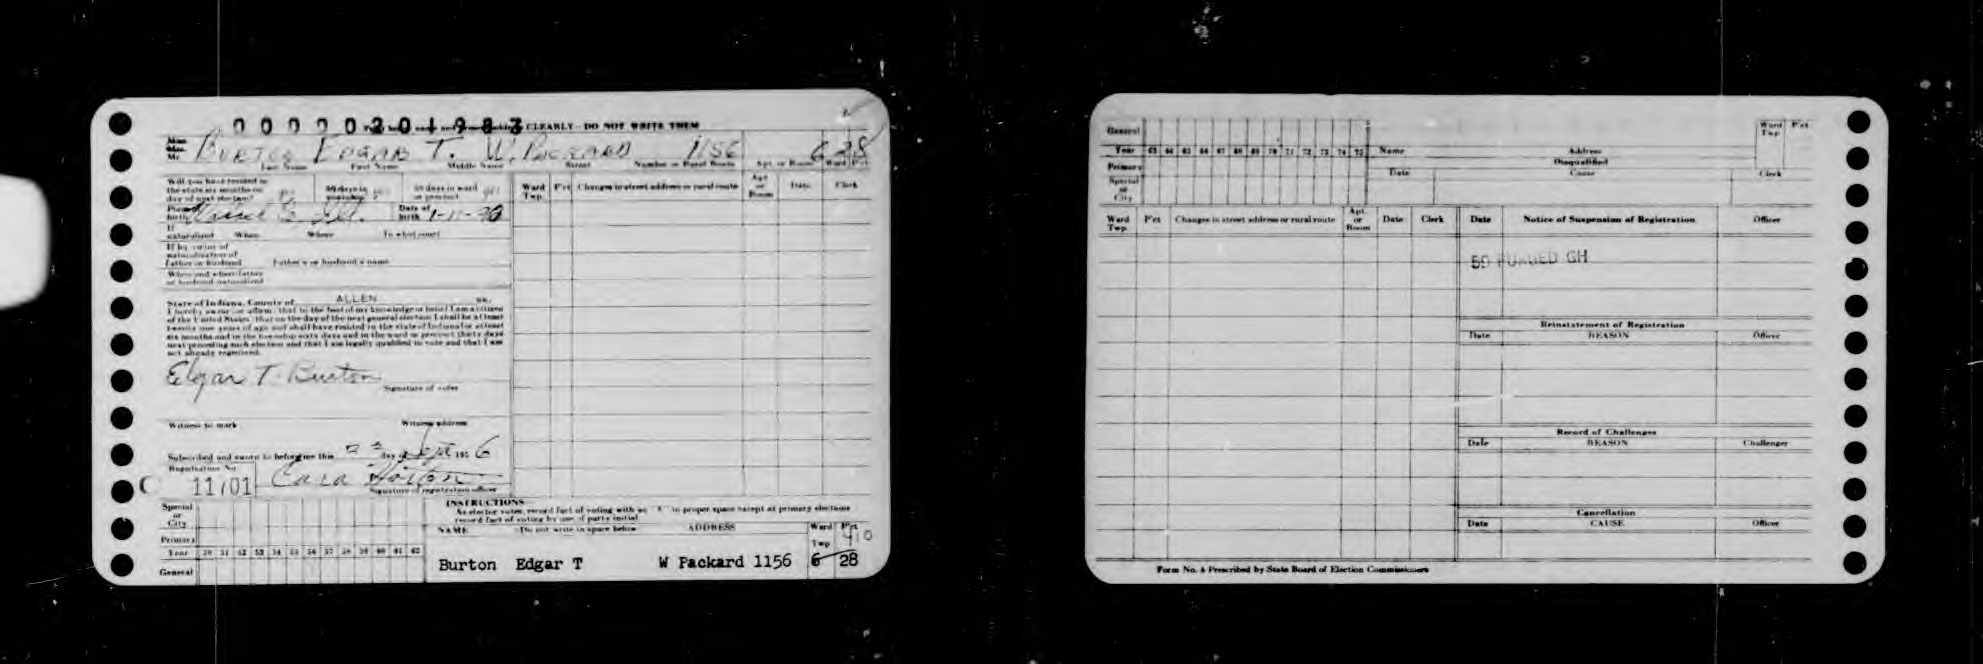 CLEARLY - DO NOT WRITE THEM
Miss
Mrs.
Mr. BURTON EDGAR T. W. PACKARD 1156 6 28
Last Name First Name Middle Name Street Number or Rural Route Apt. or Room Ward Pct
Will you have resided in the state six months on day of next election? yes 60 days in township? yes 30 days in ward or precinct yes
Place of birth Ill. Date of birth
If naturalized When Where In what court
If by virtue of naturalization of Father or husband Father's or husband's name
When and where father or husband naturalized
State of Indiana, County of ALLEN ss.
I hereby swear (or affirm) that to the best of my knowledge or belief I am a citizen
of the United States; that on the day of the next general election I shall be at least
twenty-one years of age and shall have resided in the state of Indiana for at least
six months and in the township sixty days and in the ward or precinct thirty days
next preceding such election and that I am legally qualified to vote and that I am
not already registered.
Edgar T. Burton
Signature of voter
Witness to mark Witness address
Subscribed and sworn to before me this day Sept 195 6
Registration No.
C 11101
Signature of registration officer
Ward Twp. P'ct Changes in street address or rural route Apt. or Room Date Clerk
INSTRUCTIONS
As elector votes, record fact of voting with an "X" in proper space except at primary elections
record fact of voting by use of party initial
Special or City
Primary
Year 50 51 52 53 54 55 56 57 58 59 60 61 62
General
NAME Do not write in space below ADDRESS Ward Twp P'ct
410
Burton Edgar T W Packard 1156 6 28
General
Year 63 64 65 66 67 68 69 70 71 72 73 74 75
Primary
Special or City
Name Address Ward Twp P'ct
Disqualified
Date Cause Clerk
Ward Twp. P'ct Changes in street address or rural route Apt. or Room Date Clerk
Date Notice of Suspension of Registration Officer
59 PURGED GH
Reinstatement of Registration
Date REASON Officer
Record of Challenges
Date REASON Challenger
Cancellation
Date CAUSE Officer
Form No. 4 Prescribed by State Board of Election Commissioners